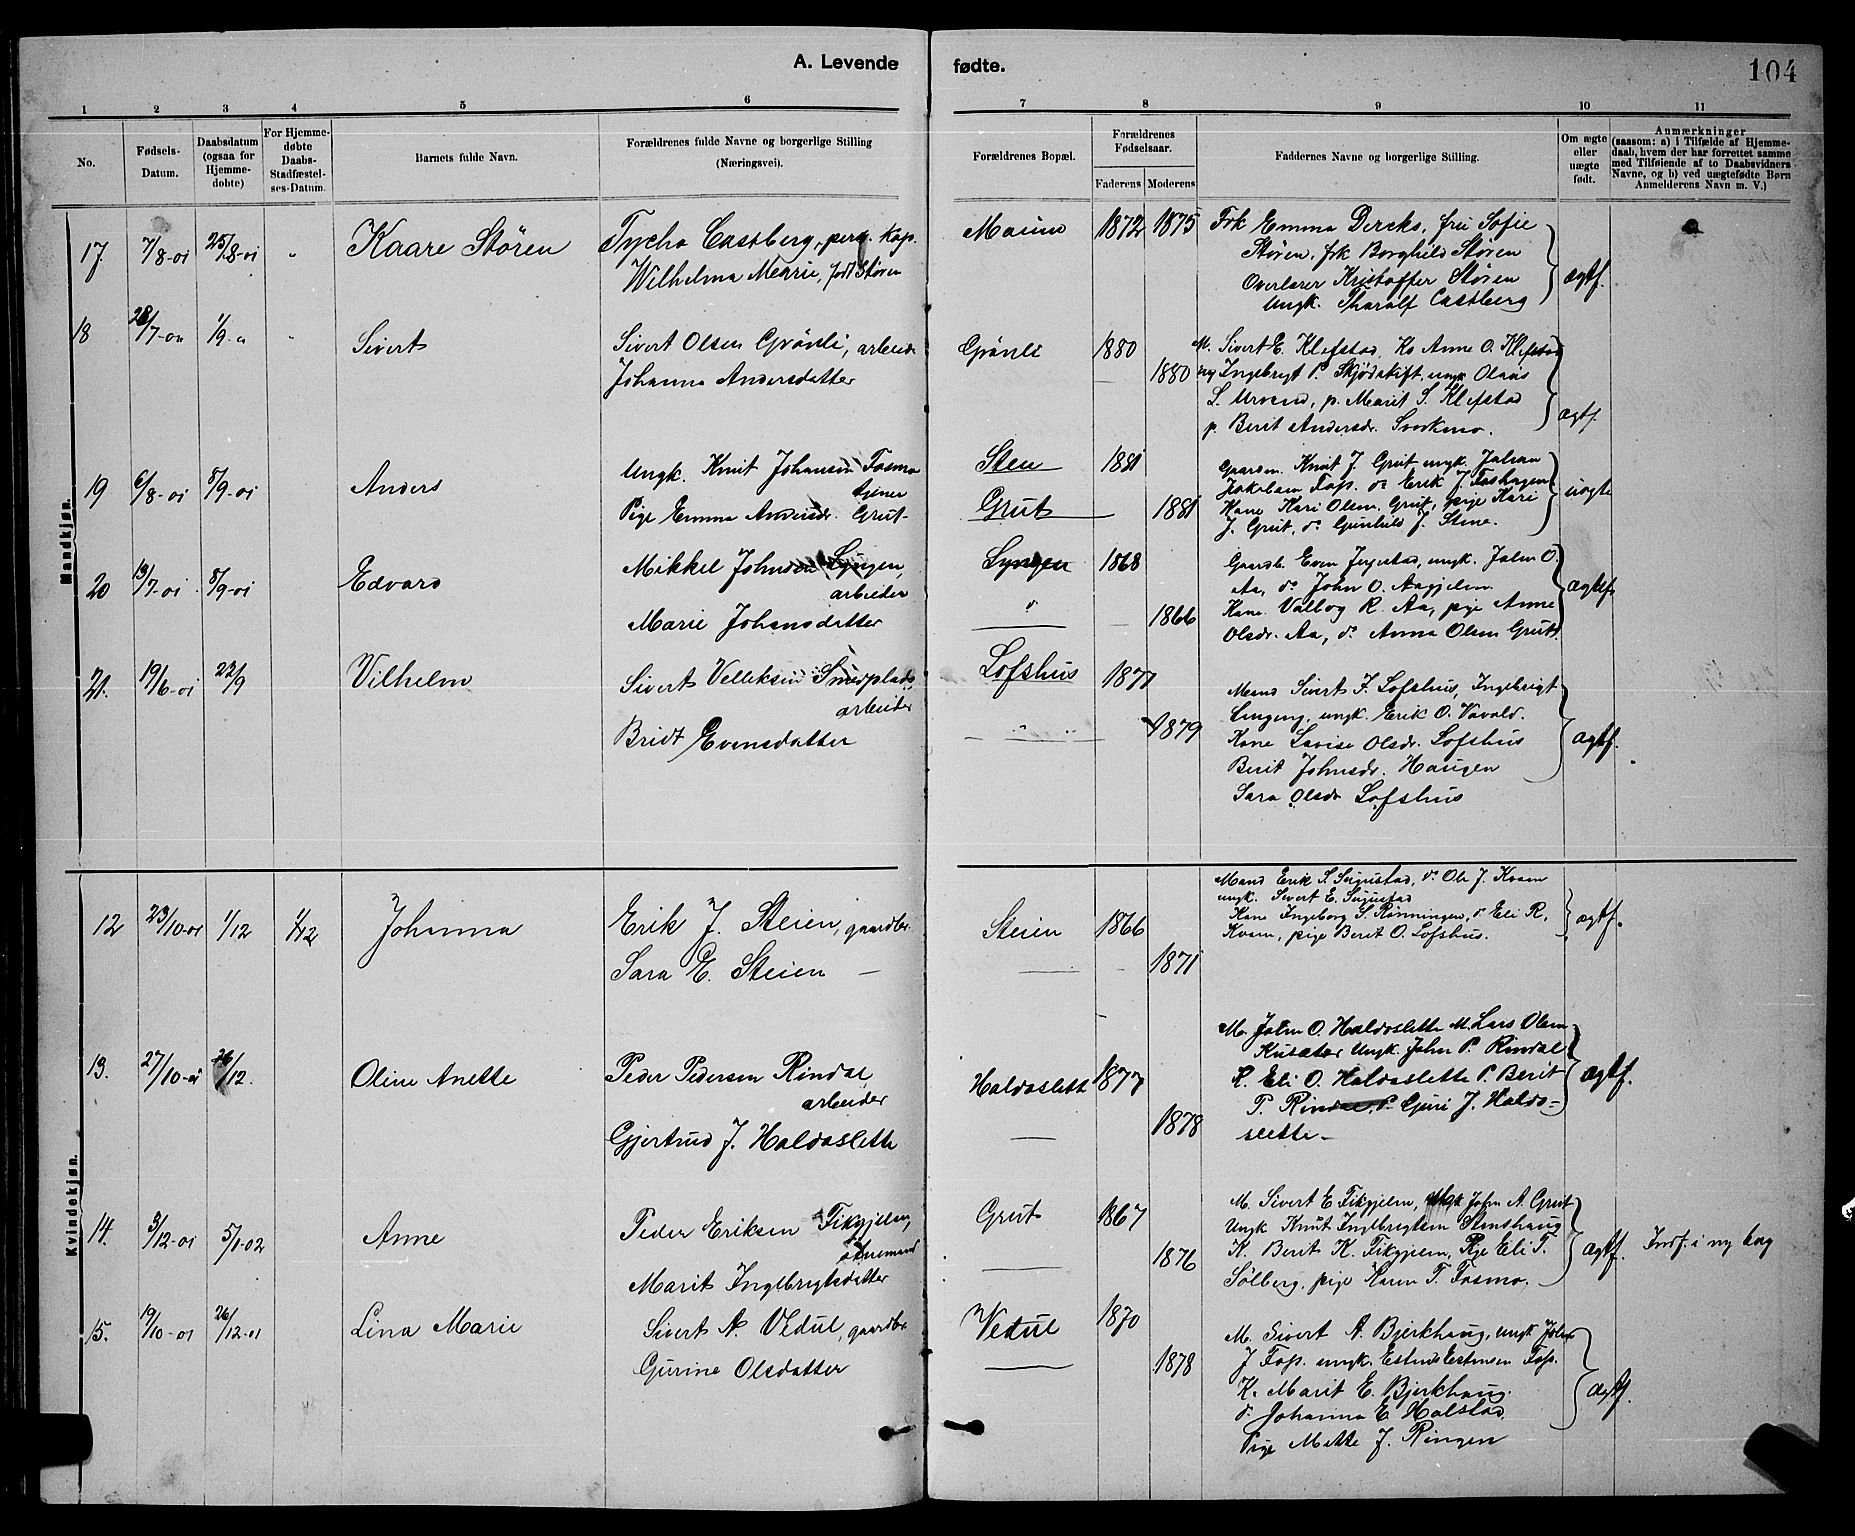 A. Levende fødte.
104
1 2 3 4 5 6 7 8 9 10 11
No.
Fødsels-Datum.
Daabsdatum (ogsaa for Hjemme-døbte)
For Hjemme-døbte Daabs-Stadfæstel-ses-Datum.
Barnets fulde Navn.
Forældrenes fulde Navne og borgerlige Stilling (Næringsvei).
Forældrenes Bopæl.
Forældrenes Fødselsaar.
Faderens Moderens
Faddernes Navne og borgerlige Stilling.
Om ægte eller uægte født.
Anmærkninger
(saasom: a) i Tilfælde af Hjemme-
daab, hvem der har forrettet samme
med Tilføiende af to Daabsvidners
Navne, og b) ved uægtefødte Børn
Anmelderens Navn m. V.)
Mandkjøn.
17. 7/8-01 25/8-01 " Kaare Stören
Tycho Castberg, pers. Kap.
Wilhelma Marie, født Stören
1872 1875
Frk Emma Dercks, fru Sofie
Stören, frk Borghild Stören
Overlærer Kristoffer Stören
Ungk. Tharalf Castberg
ægtf.
18 28/7-01 1/9-" Sivert
Sivert Olsen Grönli, arbeide
Johanna Andersdatter
Grönli 1880
1880
M. Sivert E. Klefstad, Ko Anne O. Klefstad
Ingebrigt P. Skjödskift, ungk Olaus
p. Marit S. Klefstad
p. Berit Andersdr. Svorkmo.
ægtf.
19 6/8-01 8/9-01 Anders
Ungk. Knut Johansen Fosmo
tjener
Pige Emma Andersdr. Grut
Sten 1881
Grut 1881
Gaardm. Knut J. Grut ungk. Johan
Jakobsen Fop. do Erik J. Foshagen
Kone Kari Olsen Grut, pige Kari
J. Grut, do Gunhild J. Stene.
uægte
20 13/7-01 8/9-01 Edvard
Mikkel Johnsen Lyngen,
arbeider
Marie Johansdatter
Lyngen 1868
d 1866
Gaardb. Even ungk. John O.
Aa, do John O. Aagjelm
Kone Valbog R. Aa, pige Anne
Olsdr. Aa, do Anna Olsen Grut.
ægtef.
21. 19/6-01 22/9 Vilhelm
Sivert Velleksen Smedplads
arbeider
Bridt Evensdatter
Lofshus 1871
" " " 1879
Mand Sivert J. Lofshus, Ingebrigt
ungk. Erik O. Vavold.
Kone Lavise Olsdr. Lofshus
Berit Johnsdr. Haugen
Sara Olsdr Lofshus
ægtf.
Kvindekjøn.
12 23/10-01 1/12 1/12 Johanna
Erik J. Steien, gaardbr.
Sara E. Steien
Steien 1866
1871
Mand Erik S. do Ole J. Kvam
ungk. Sivert E.
Kone Ingeborg S. Rønningen, d Eli R.
Kvam, pige Berit O. Lofshus.
ægtf.
13. 27/10-01 26/12. Oline Anette
Peder Pedersen Rindal,
arbeider
Gjertrud J. Haldoslette
Haldoslett 1877
1878
M. John O. Haldoslette M. Lars Olsen
Kusæter Ungk. John P. Rindal
K. Eli O. Haldoslette P. Berit
P. Rindal, P. Guri J. Haldo-
slette
ægtf.
14. 3/12-01 5/1-02 Anne
Peder Eriksen Fikgjelm,
Marit Ingebrigtsdatter
Grut 1867
1876
M. Sivert E Fikgjelm, John A. Grut
Ungk Knut Ingebrigtsen Stenshaug
K. Berit K. Fikgjelm, Pige Eli T.
Sølberg, pige Karen T. Fosmo.
ægtf.
Indf. i ny bog
15. 19/10-01 26/12-01 Lina Marie
Sivert A. Vedul, gaardbr.
Gurine Olsdatter
Vedul 1870
1878
M. Sivert A. Bjerkhaug, ungk John
J Fop. ungk. Estensen Fop.
K. Marit E. Bjerkhaug.
d. Johanna E Halstad.
Pige Mette J. Ringen
ægtf.